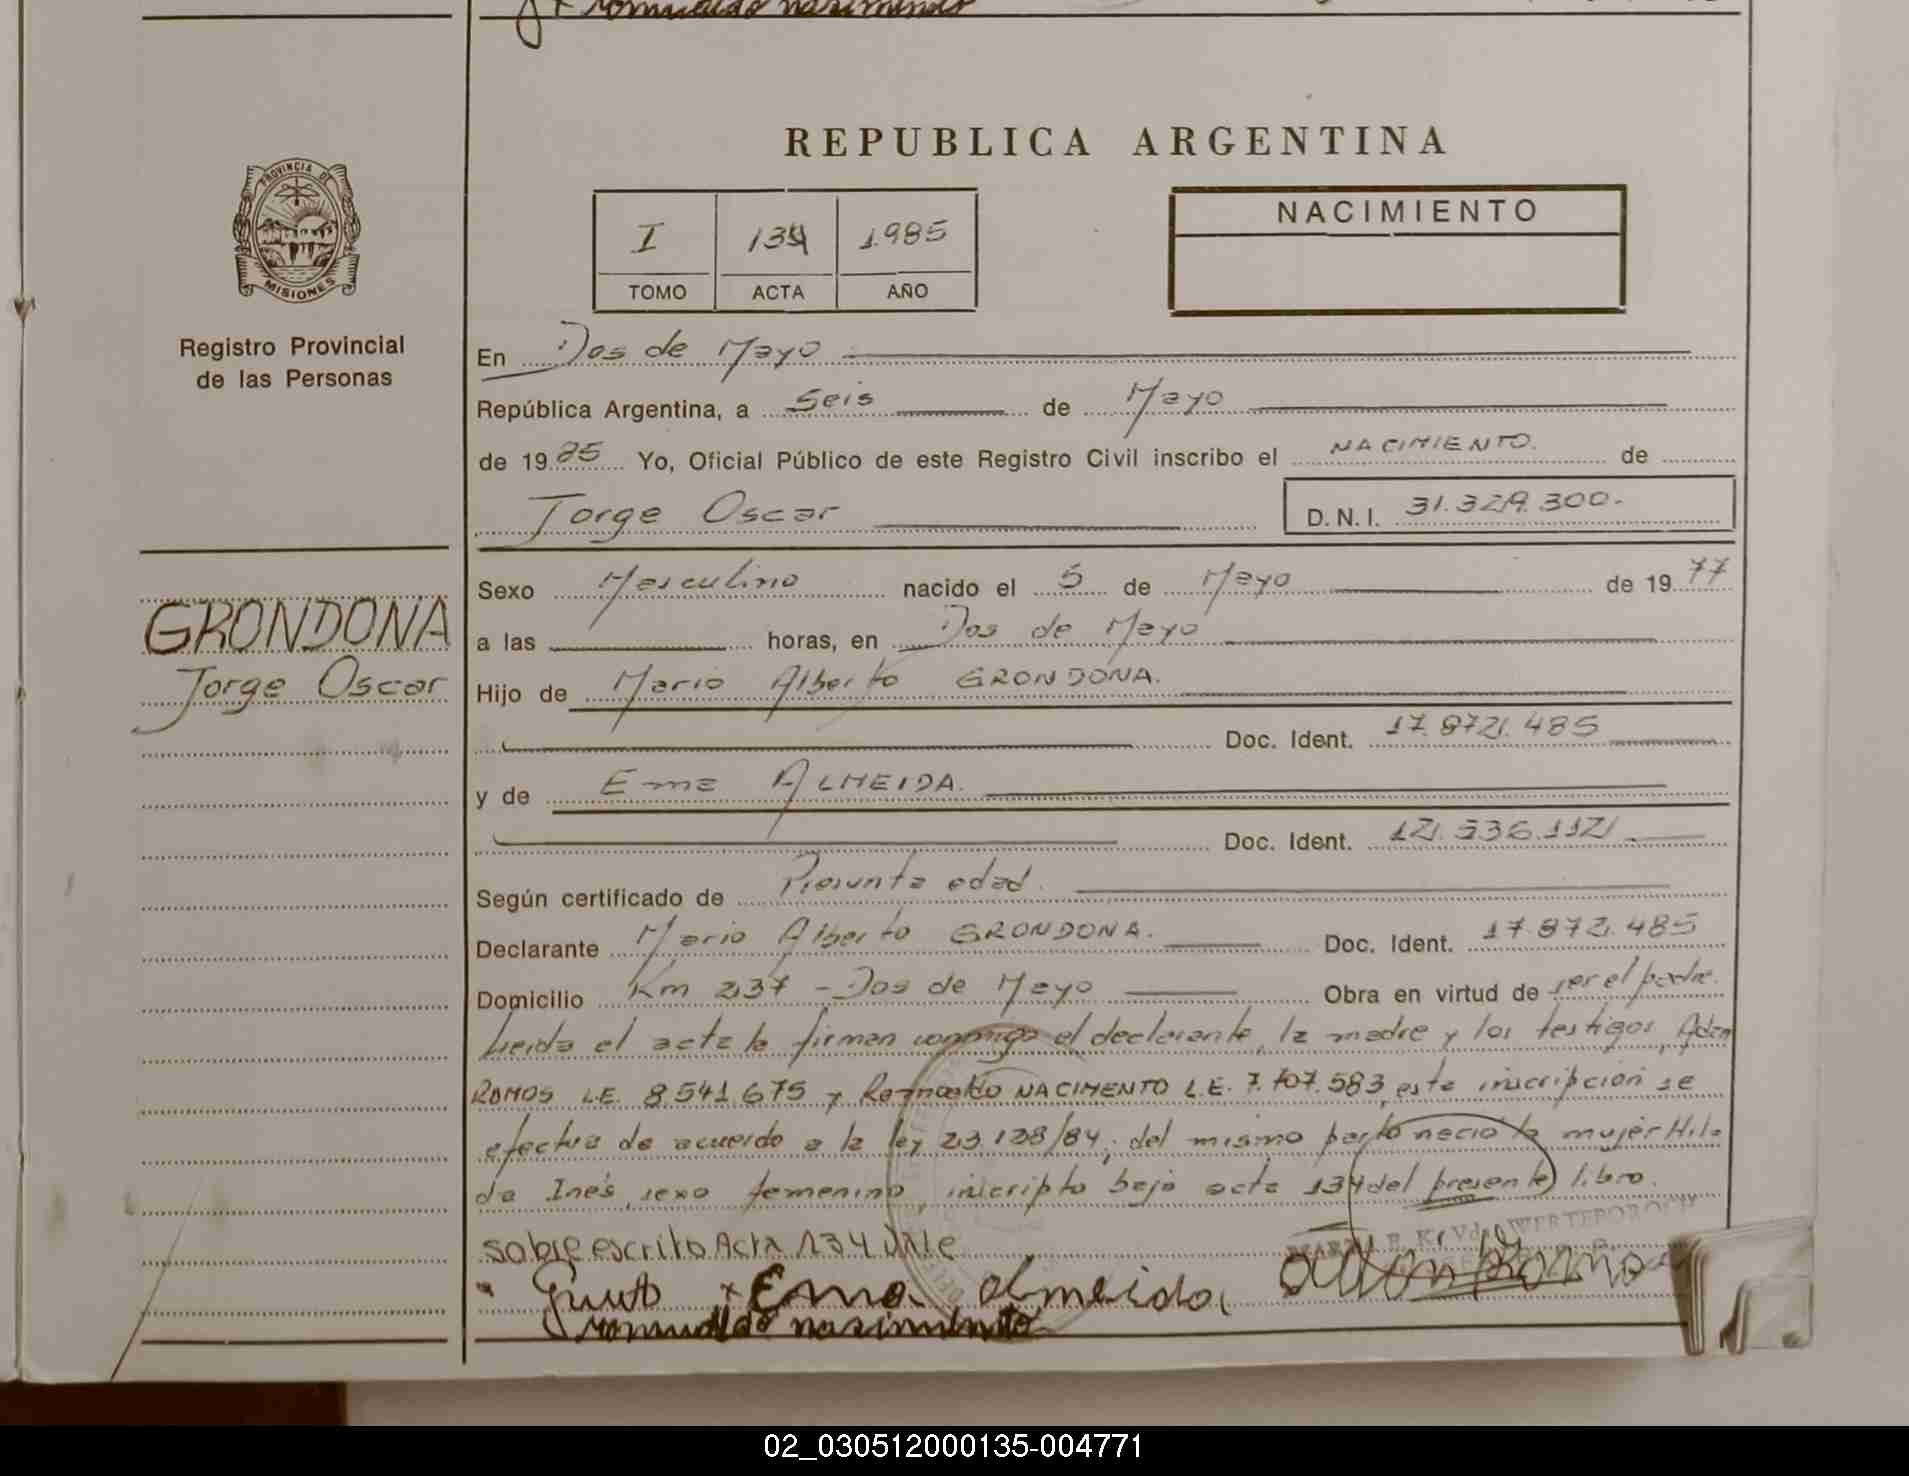 romualdo nasimento
REPUBLICA ARGENTINA
PROVINCIA DE
MISIONES
Registro Provincial
de las Personas
I 134 1985
TOMO ACTA AÑO
NACIMIENTO
En Dos de Mayo
República Argentina, a Seis de Mayo
de 1985 Yo, Oficial Público de este Registro Civil inscribo el NACIMIENTO. de
Jorge Oscar D.N.I. 31.329.300.-
GRONDONA
Jorge Oscar
Sexo Masculino nacido el 5 de Mayo de 1977
a las horas, en Dos de Mayo
Hijo de Mario Alberto GRONDONA.
Doc. Ident. 17.872.485
y de Ema ALMEIDA.
Doc. Ident. 12.536.112
Según certificado de Presunta edad.
Declarante Mario Alberto GRONDONA. Doc. Ident. 17.872.485
Domicilio Km 237 - Dos de Mayo Obra en virtud de ser el padre.
Leida el acta la firman conmigo el declarante, la madre y los testigos, Adan
RAMOS L.E. 8.541.675 y Romualdo NACIMENTO L.E. 7.707.583, esta inscripción se
efectua de acuerdo a la ley 23.128/84, del mismo parto nació la mujer Hil-
da Inés, sexo femenino, inscripto bajo acta 134 del presente libro.
sobre escrito Acta 134 Vale
Ema almeida
romualdo nasimento
02_030512000135-004771